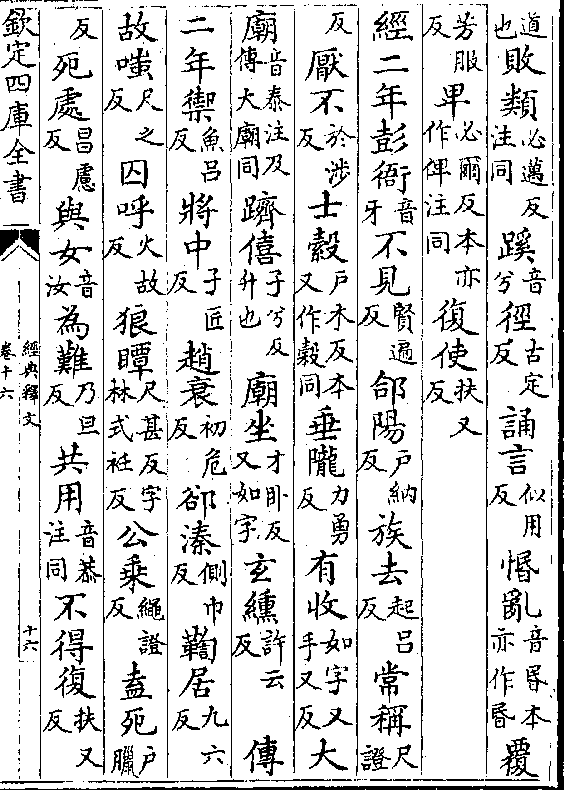 道也敗類必邁反注同蹊音兮徑古定反誦言似用反惛亂音昏本亦作昏覆
芳服反卑必爾反本亦作俾注同復使扶又反
經二年彭衙音牙不見賢遍反郃陽戶納反族去起呂反常稱尺證
反厭不於涉反士縠戶木反本又作穀同垂隴力勇反有收如字又手又反大
廟音泰注及傳大廟同躋僖子兮反升也廟坐才卧反又如字玄纁許云反傳
二年禦魚呂反將中子匠反趙衰初危反郤溱側巾反鞫居九六反
故嗤尺之反囚呼火故反狼瞫尺甚反字林式衽反公乘繩證反盍死戶臘
反死處昌慮反與女音汝為難乃旦反共用音恭注同不得復扶又反
欽定四庫全書
經典釋文
卷十六
十六